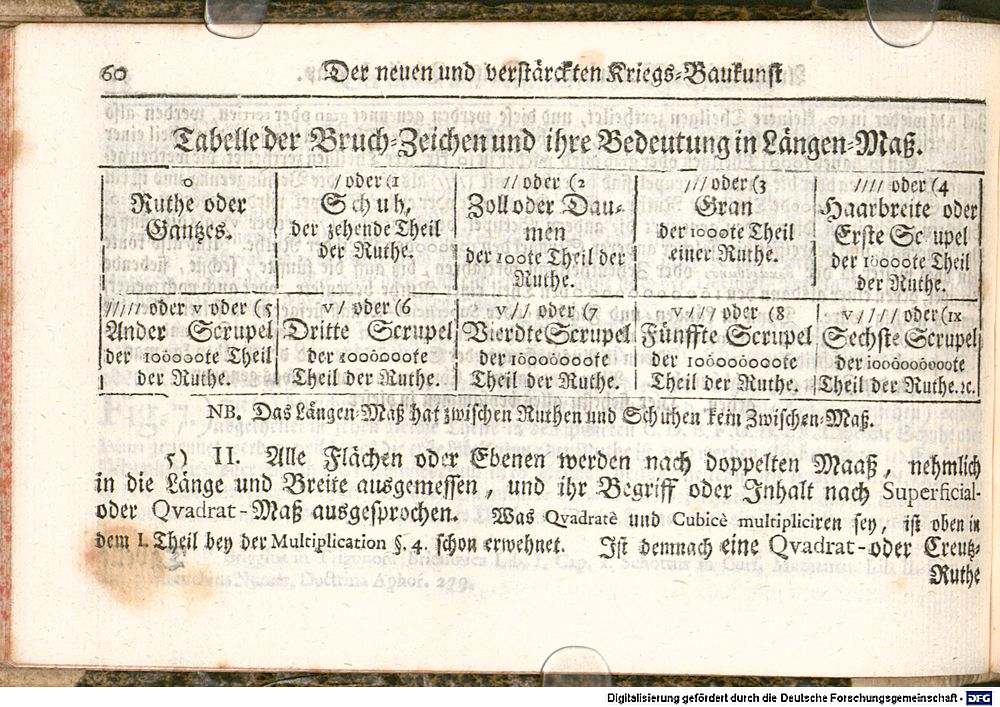 60
Der neuen und verstärckten Kriegs-Baukunst
Tabelle der Bruch-Zeichen und ihre Bedeutung in Längen-Maß.
0
Ruthe oder
Gantzes.
/ oder (1
Schuh,
der zehende Theil
der Ruthe.
// oder (2
Zoll oder Dau-
men
der 100te Theil der
Ruthe.
/// oder (3
Gran
der 1000te Theil
einer Ruthe.
//// oder (4
Haarbreite oder
Erste Scrupel
der 10000te Theil
der Ruthe.
///// oder v oder (5
Ander Scrupel
der 100000te Theil
der Ruthe.
v/ oder (6
Dritte Scrupel
der 1000000te
Theil der Ruthe.
v// oder (7
Vierdte Scrupel
der 10000000te
Theil der Ruthe.
v/// oder (8
Fünffte Scrupel
der 100000000te
Theil der Ruthe.
v//// oder (ix
Sechste Scrupel
der 1000000000te
Theil der Ruthe. ꝛc.
NB. Das Längen-Maß hat zwischen Ruthen und Schuhen kein Zwischen-Maß.
5) II. Alle Flächen oder Ebenen werden nach doppelten Maaß, nehmlich
in die Länge und Breite ausgemessen, und ihr Begriff oder Inhalt nach Superficial-
oder Qvadrat-Maß ausgesprochen. Was Qvadratè und Cubicè multipliciren sey, ist oben in
dem I. Theil bey der Multiplication §. 4. schon erwehnet. Ist demnach eine Qvadrat-oder Creutz-
Ruthe
Digitalisierung gefördert durch die Deutsche Forschungsgemeinschaft - DFG